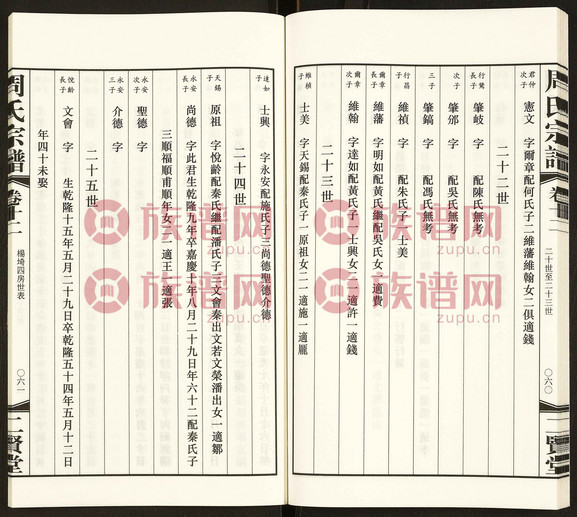 周氏宗譜 卷十二 二十世至二十三世 〇六〇 二賢堂
君仲次子 憲文 字爾章配何氏子二維藩維翰女二俱適錢
二十二世
行鷺長子 肇岐 字 配陳氏無考
次子 肇邠 字 配吳氏無考
三子 肇鎬 字 配馮氏無考
行昌子 維禎 字 配朱氏子一士美
爾章長子 維藩 字明如配黃氏繼配吳氏女一適費
爾章次子 維翰 字達如配黃氏子一士興女二一適許一適錢
二十三世
維楨子 士美 字天錫配秦氏子一原祖女二一適施一適龎
達如子 士興 字永安配施氏子三尚德聖德介德
二十四世
天錫子 原祖 字悅齡配秦氏繼配潘氏子三文會秦出文若文榮潘出女一適鄒
永安長子 尚德 字此君生乾隆九年卒嘉慶十年八月二十九日年六十二配秦氏子
三順福順甫順年女二一適王一適張
永安次子 聖德 字
永安三子 介德 字
二十五世
悅齡長子 文會 字 生乾隆十五年五月二十九日卒乾隆五十四年五月十二日
年四十未娶
周氏宗譜 卷十二 楊埼四房世表 〇六一 二賢堂
族谱网
zupu.cn
族谱网
zupu.cn